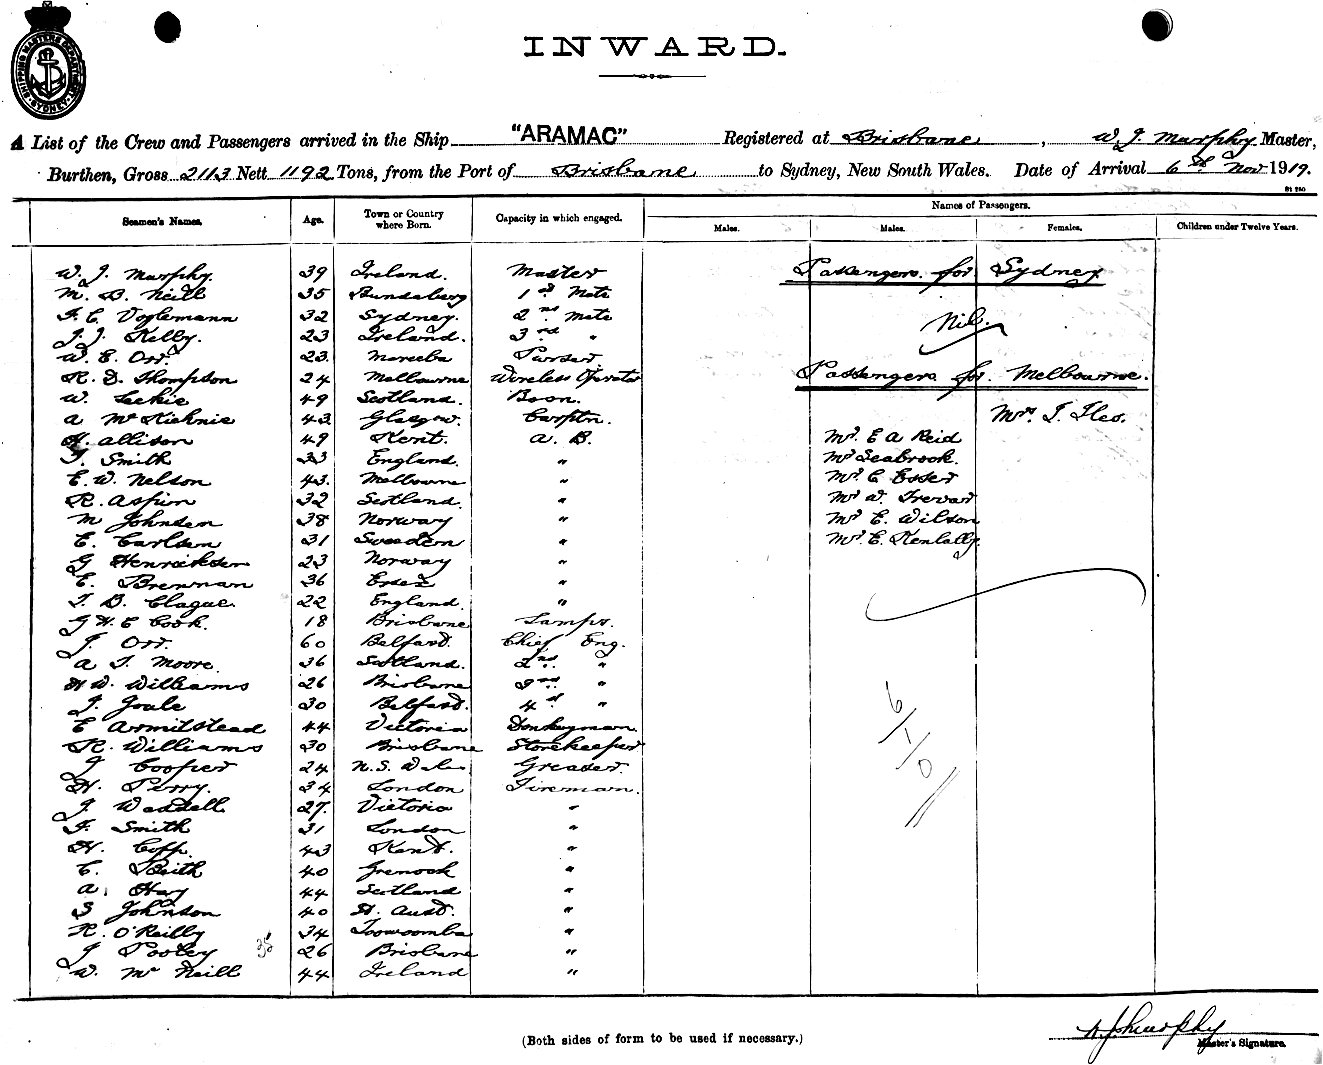 SHIPPING MASTERS DEPARTMENT SYDNEY
INWARD.
A List of the Crew and Passengers arrived in the Ship "ARAMAC" Registered at Brisbane, W. J. Murphy Master,
Burthen, Gross 2113 Nett 1192 Tons, from the Port of Brisbane to Sydney, New South Wales. Date of Arrival 6th Nov 1919.
Seamen's Names. Age. Town or Country where Born. Capacity in which engaged. Names of Passengers.
Males. Males. Females. Children under Twelve Years.
W. J. Murphy. 39 Ireland. Master Passengers for Sydney
M. B. Neill 35 Bundaberg 1st Mate
F. C. Voglemann 32 Sydney. 2nd Mate Nil.
J. J. Kelly. 23 Ireland. 3rd "
W. E. Orr 23. Mareeba Purser
R. D. Thompson 24 Melbourne Wireless Operator Passengers for Melbourne.
W. Leckie 49 Scotland. Bosn.
A McKichnie 43 Glasgow. Carptn. Mrs. I. Iles.
H. Allison 49 Kent. A. B. Mr. E A Reid
F. Smith 33 England. " Mr Seabrook.
E. W. Nelson 43. Melbourne " Mr. C Esser
R. Aspin 32 Scotland. " Mr W.
M Johnsen 38 Norway " Mr. E. Wilson
C. Carlsen 31 Sweden " Mr. E. Kenlally.
G Henricksen 23 Norway "
E. Brennan 36 Essex "
T. B. Clague. 22 England. "
G H E Cook. 18 Brisbane Lamps.
J. Orr. 60 Belfast. Chief Eng.
A T. Moore. 36 Scotland. 2nd "
H W. Williams 26 Brisbane 3rd "
J. Joale 30 Belfast. 4th "
E Armitstead 44 Victoria Donkeyman
R. Williams 30 Brisbane Storekeeper
J Cooper 24 N.S. Wales Greaser.
H. Perry. 34 London Fireman.
J. Waddell 27. Victoria "
F. Smith 31 London "
H. Copp. 43 Kent. "
C. Beith 40 Grenock "
A. Hay 44 Scotland "
S Johnson 40 St. Aust. "
R. O'Reilly 34 Toowoomba "
J Pooley 35 26 Brisbane "
W. McNeill 44 Ireland "
6/1/0
(Both sides of form to be used if necessary.)
W J Murphy
Master's Signature.